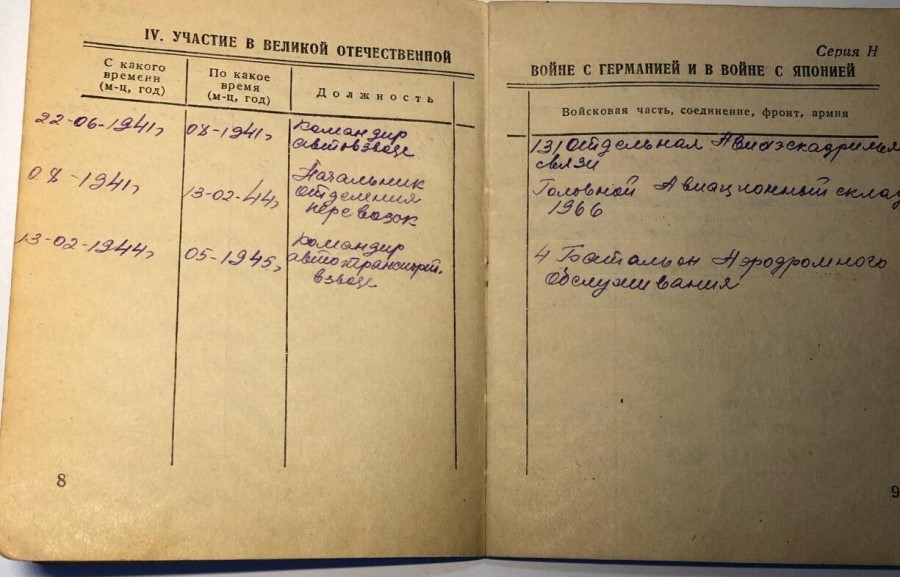 IV. УЧАСТИЕ В ВЕЛИКОЙ ОТЕЧЕСТВЕННОЙ
С какого
времени
(м-ц, год)
По какое
время
(м-ц, год)
Должность
22-06-1941г
08-1941г
Командир
автовзвода
08-1941г
13-02-44г
Начальник
отделения
перевозок
13-02-1944г
05-1945г
Командир
автотранспорт.
взвода
8
Серия Н
ВОЙНЕ С ГЕРМАНИЕЙ И В ВОЙНЕ С ЯПОНИЕЙ
Войсковая часть, соединение, фронт, армия
131 отдельная Авиаэскадрилья
связи
Головной Авиационный склад
1966
4 Батальон Аэродромного
обслуживания
9